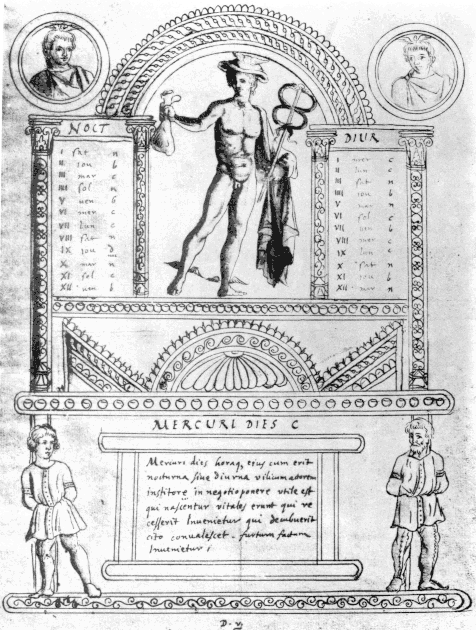 NOCT
I sat n
II iou b
III mar n
IIII sol n
V uen b
VI mer c
VII lun c
VIII sat n
IX iou d
X mar n
XI sol c
XII uen b
DIUR
I mer c
II lun c
III sat n
IIII iou b
V mar n
VI sol c
VII uen b
VIII mer c
IX lun c
X sat n
XI iou b
XII mar n
MERCURI DIES C
Mercuri dies horaq, eius cum erit
nocturna siue diurna viliumatorem
institorē in negotioponere vtile est
qui nascentur vitales erunt qui re
cesserit Inuenietur qui decubuerit
cito conualescet . furtum factum
Inuenietur /